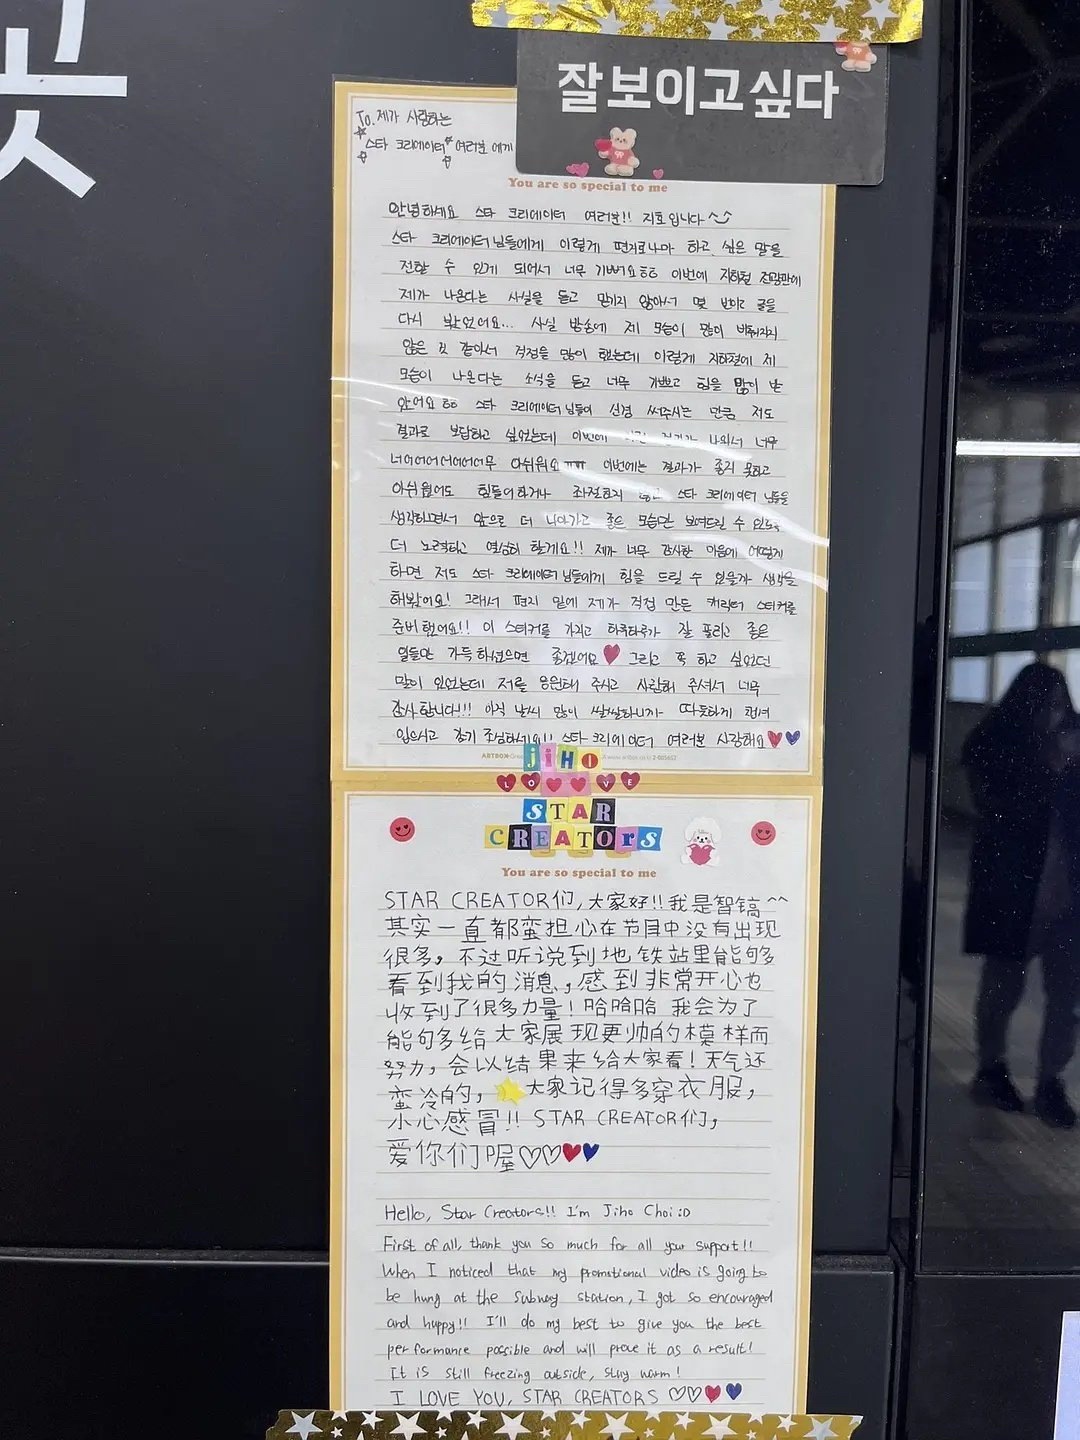 곳
잘 보이고 싶다
To. 제가 사랑하는
스타 크리에이터 여러분 에게
You are so special to me
안녕하세요 스타 크리에이터 여러분!! 지호입니다^^
스타 크리에이터님들에게 이렇게 편지로나마 하고 싶은 말을
전할 수 있게 되어서 너무 기뻐요ㅎㅎ 이번에 지하철 전광판에
제가 나온다는 사실을 듣고 믿기지 않아서 몇 번이고 글을
다시 봤었어요... 사실 방송에 제 모습이 많이 비춰지지
않은 것 같아서 걱정을 많이 했는데 이렇게 지하철에 제
모습이 나온다는 소식을 듣고 너무 기쁘고 힘을 많이 받
았어요ㅎㅎ 스타 크리에이터님들이 신경 써주시는 만큼 저도
결과로 보답하고 싶었는데 이번에 결과가 나와서 너무
너어어어어어어어무 아쉬워요ㅠㅠ 이번에는 결과가 좋지 못하고
아쉬웠어도 힘들어하거나 좌절하지 않고 스타 크리에이터님들을
생각하면서 앞으로 더 나아가고 좋은 모습만 보여드릴 수 있도록
더 노력하고 열심히 할게요!! 제가 너무 감사한 마음에 어떻게
하면 저도 스타 크리에이터님들에게 힘을 드릴 수 있을까 생각을
해봤어요! 그래서 편지 밑에 제가 직접 만든 캐릭터 스티커를
준비했어요!! 이 스티커를 가지고 하루하루가 잘 풀리고 좋은
일들만 가득하셨으면 좋겠어요 그리고 꼭 하고 싶었던
말이 있었는데 저를 응원해 주시고 사랑해 주셔서 너무
감사합니다!!! 아직 날씨 많이 쌀쌀하니까 따뜻하게 챙겨
입으시고 감기 조심하세요!! 스타 크리에이터 여러분 사랑해요
ARTBOX
JIHO
LOVE
STAR
CREATORS
You are so special to me
STAR CREATOR们,大家好!!我是智镐^^
其实一直都蛮担心在节目中没有出现
很多,不过听说到地铁站里能够
看到我的消息,感到非常开心也
收到了很多力量!哈哈哈 我会为了
能够多给大家展现更帅的模样而
努力,会以结果来给大家看!天气还
蛮冷的,大家记得多穿衣服,
小心感冒!! STAR CREATOR们,
爱你们喔♡♡
Hello, Star Creators!! I'm Jiho Choi :D
First of all, thank you so much for all your support!!
When I noticed that my promotional video is going to
be hung at the subway station, I got so encouraged
and happy!! I'll do my best to give you the best
performance possible and will prove it as a result!
It is still freezing outside, stay warm!
I LOVE YOU, STAR CREATORS ♡♡